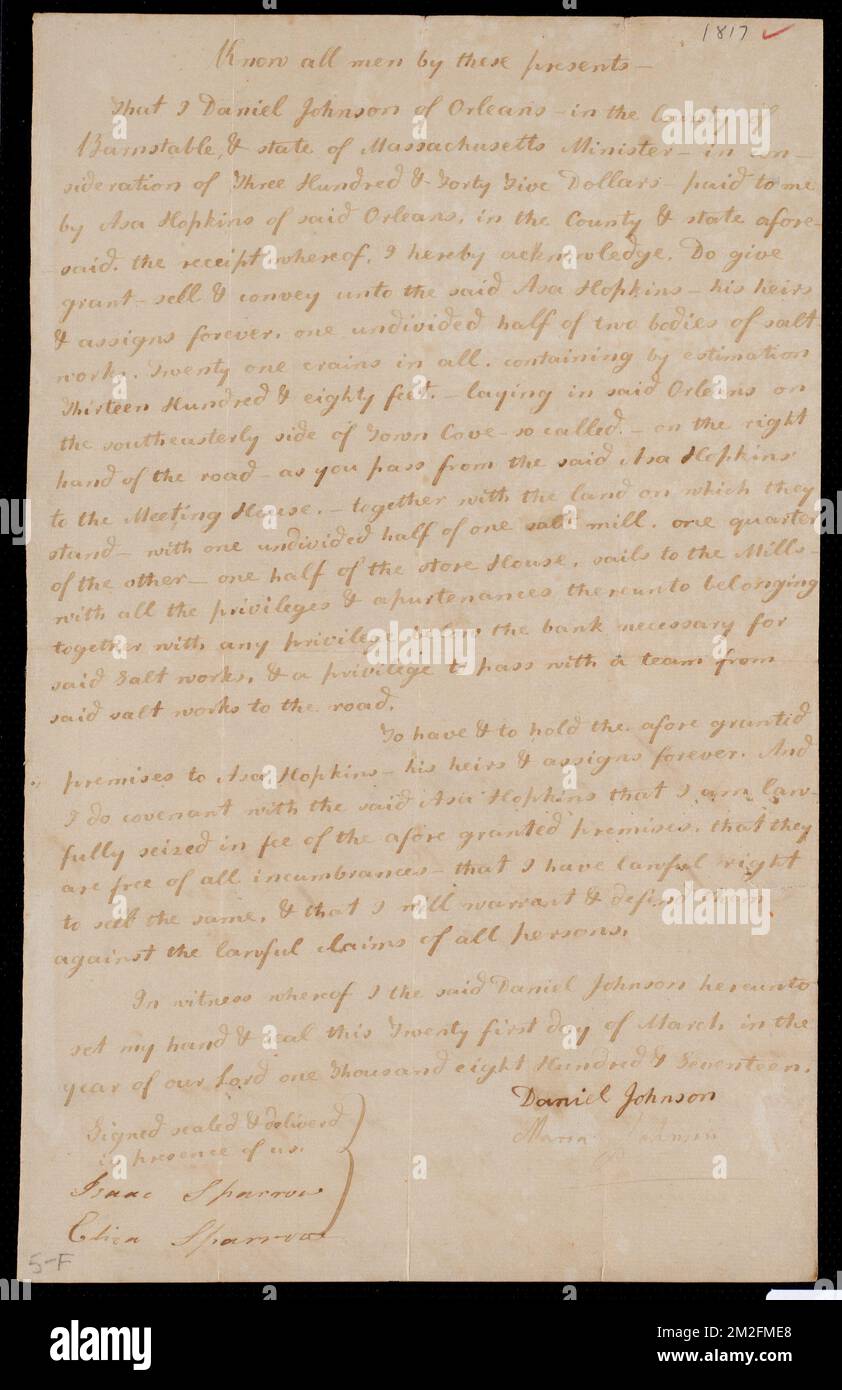 1817
Know all men by these presents —
That I Daniel Johnson of Orleans – in the County of
Barnstable, & state of Massachusetts Minister – in con –
sideration of Three Hundred & Forty Five Dollars – paid to me
by Asa Hopkins of said Orleans, in the County & state afore-
said. the receipt whereof, I hereby acknowledge. Do give
grant – sell & convey unto the said Asa Hopkins – his heirs
& assigns forever. one undivided half of two bodies of salt
works. Twenty one crains in all. containing by estimation
Thirteen Hundred & eighty feet. – laying in said Orleans on
the southeasterly side of Town Cove – so called. – on the right
hand of the road – as you pass from the said Asa Hopkins
to the Meeting House. – together with the land on which they
stand – with one undivided half of one salt mill. one quarter
of the other – one half of the store House, sails to the Mills –
with all the privileges & apurtenances thereunto belonging
together with any privilege below the bank necessary for
said salt works, & a privilege to pass with a team from
said salt works to the road.
To have & to hold the afore granted
premises to Asa Hopkins – his heirs & assigns forever. And
I do covenant with the said Asa Hopkins that I am law-
fully seized in fee of the afore granted premises. that they
are free of all incumbrances – that I have lawful right
to sell the same, & that I will warrant & defend them
against the lawful claims of all persons.
In witness whereof I the said Daniel Johnson hereunto
set my hand & seal this Twenty first day of March in the
year of our Lord one Thousand eight Hundred & Seventeen.
Daniel Johnson
Signed sealed & deliverd
in presence of us.
Maria Johnson
Isaac Sparrow
Sparrow
5-F
alamy
Image ID: 2M2FME8
www.alamy.com